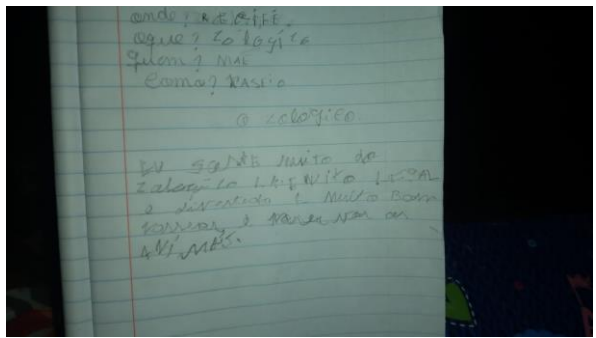 onde? RECIFE.
oque? zologico
quem? MAE
como? PASEIO
O zologico
EU GOSTE MUITO do
zalogico LA É MUITO LEGAL
e divertado E MUITO Bom
E os
ANIMAES.